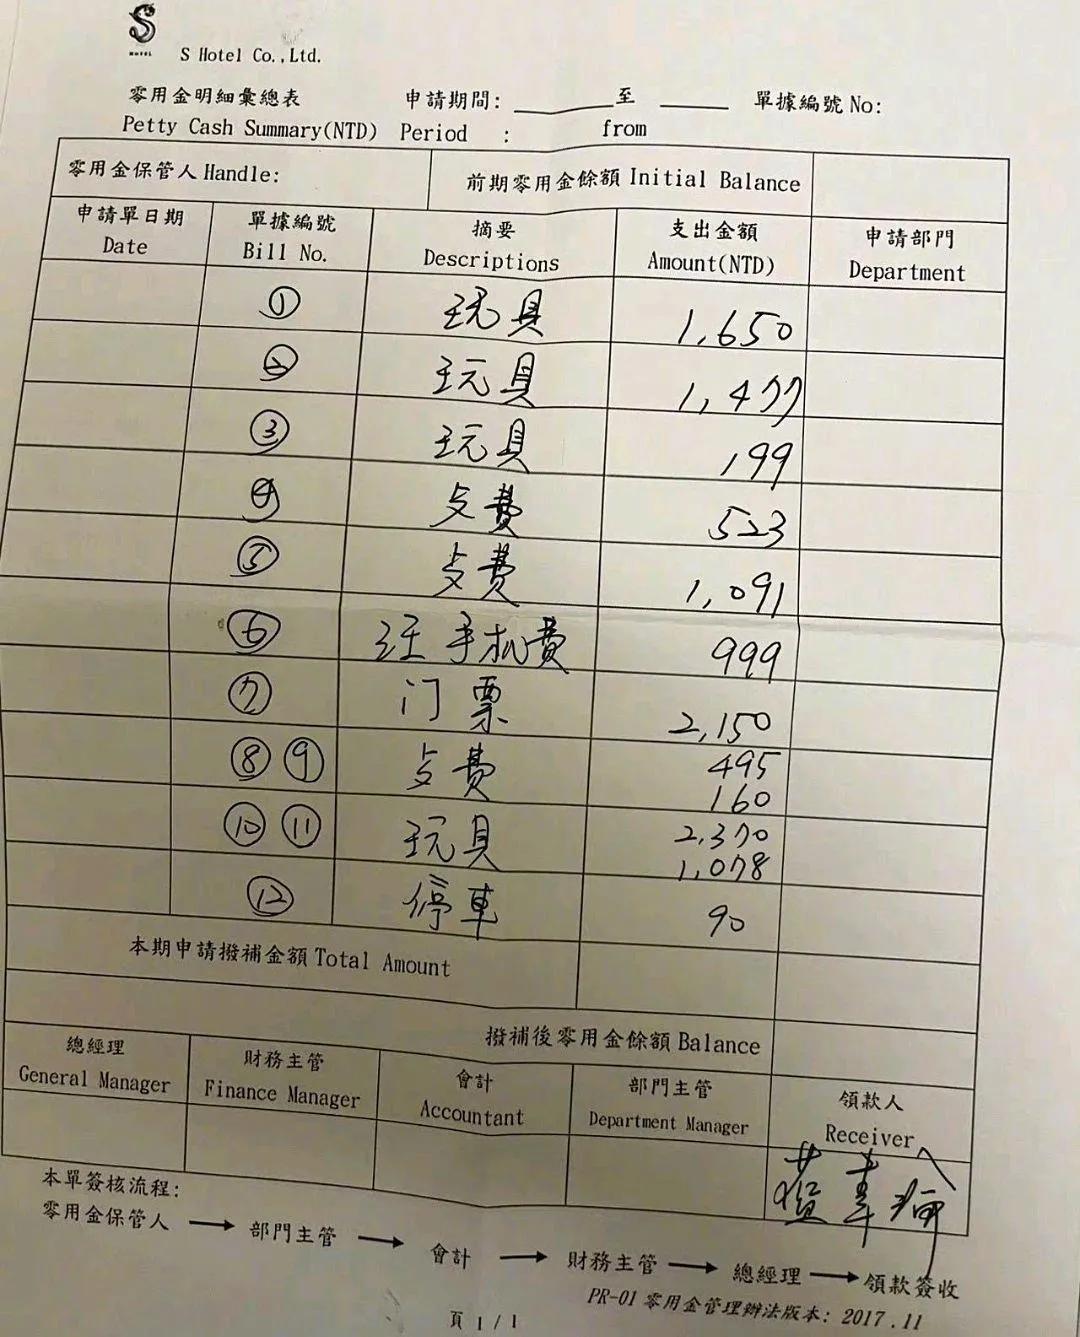 S
HOTEL
S Hotel Co.,Ltd.
零用金明細彙總表 申請期間: 至 單據編號 No:
Petty Cash Summary(NTD) Period : from
零用金保管人 Handle: 前期零用金餘額 Initial Balance
申請單日期 單據編號 摘要 支出金額 申請部門
Date Bill No. Descriptions Amount(NTD) Department
① 玩具 1,650
② 玩具 1,477
③ 玩具 199
④ 费 523
⑤ 费 1,091
⑥ 手机費 999
⑦ 门票 2,150
⑧ ⑨ 费 495
160
⑩ ⑪ 玩具 2,370
1,078
⑫ 停車 90
本期申請撥補金額 Total Amount
撥補後零用金餘額 Balance
總經理 財務主管 會計 部門主管 領款人
General Manager Finance Manager Accountant Department Manager Receiver
本單簽核流程:
零用金保管人 → 部門主管 → 會計 → 財務主管 → 總經理 → 領款簽收
PR-01 零用金管理辦法版本: 2017.11
頁 1 / 1